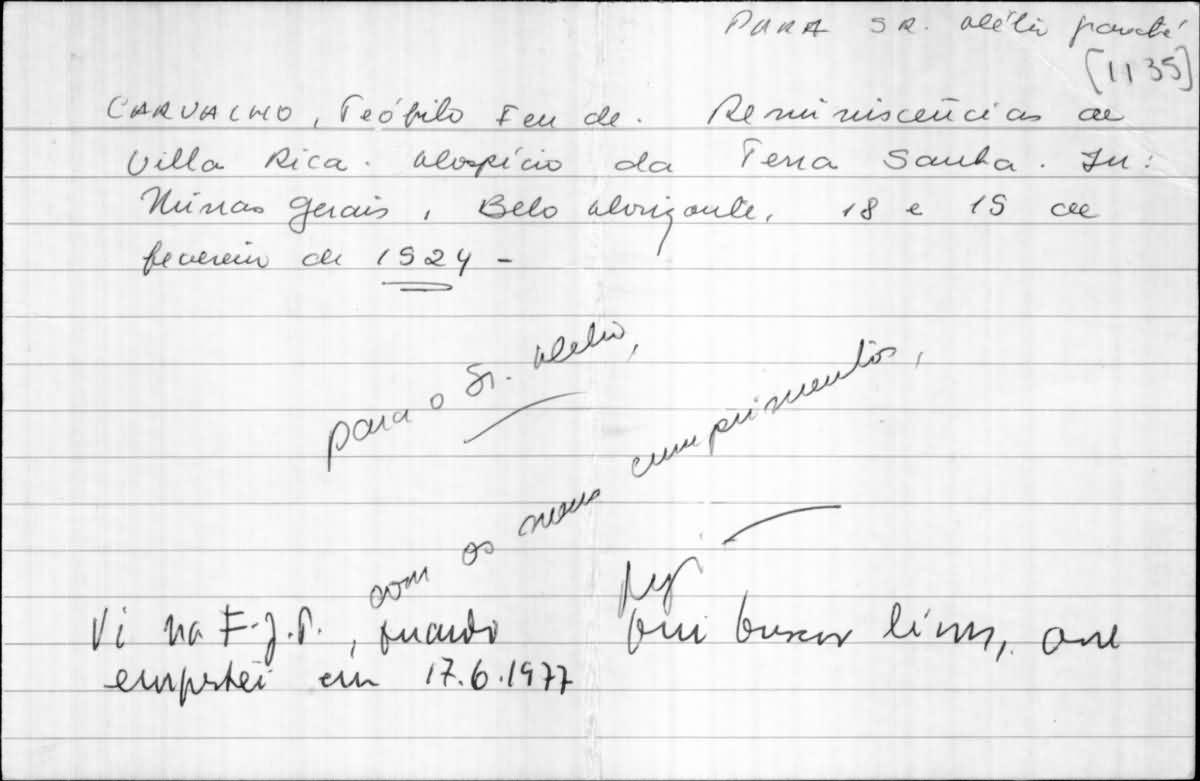 PARA SR. Hélio
[1135]
CARVALHO, Teófilo Feu de. Reminiscências de
Villa Rica. Hospício da Terra Santa. In:
Minas Gerais, Belo Horizonte, 18 e 19 de
fevereiro de 1924 -
para o Sr. Helio,
com os meus cumprimentos,
Vi na F.J.P., quando fui buscar livros, que
emprestei em 17.6.1977